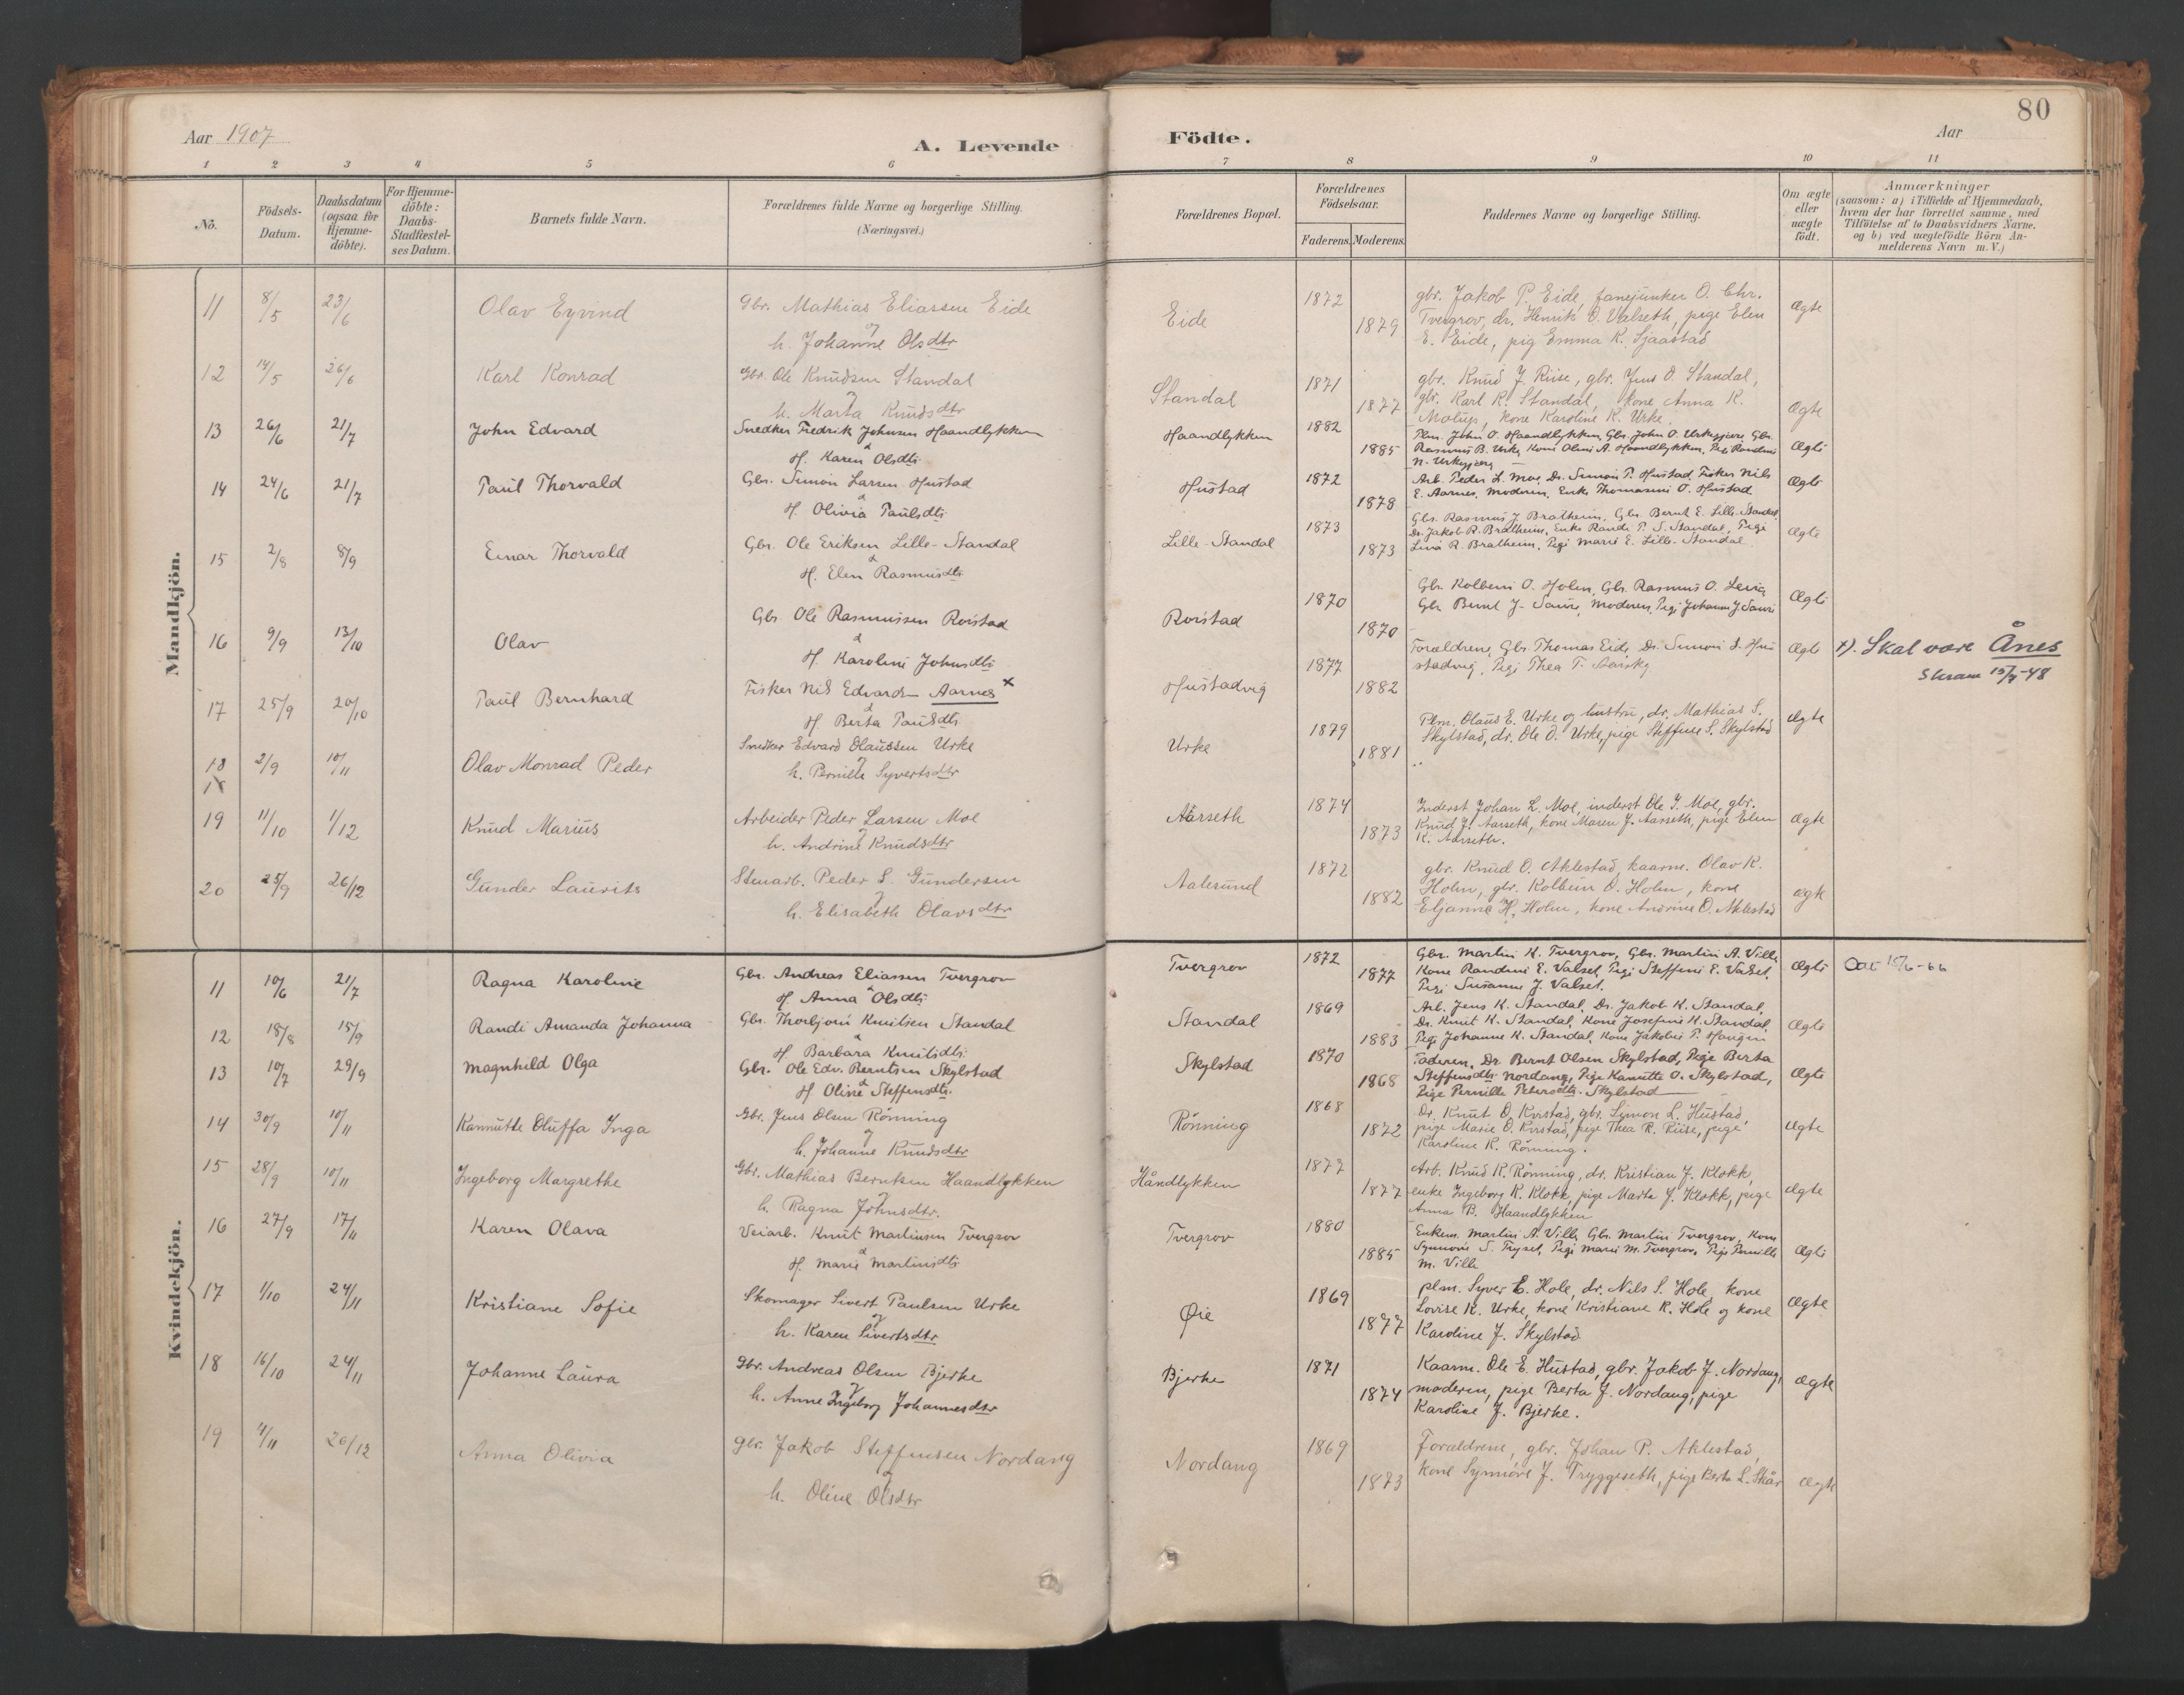 80
Aar 1907
A. Levende Födte.
Aar
1 2 3 4 5 6 7 8 9 10 11
No.
Födsels-Datum.
Daabsdatum (ogsaa for Hjemme-döbte).
For Hjemme-döbte: Daabs-Stadfæstel-ses Datum.
Barnets fulde Navn.
Forældrenes fulde Navne og borgerlige Stilling. (Næringsvei.)
Forældrenes Bopæl.
Forældrenes Födselsaar.
Faderens. Moderens.
Faddernes Navne og borgerlige Stilling.
Om ægte eller uægte födt.
Anmærkninger
(saasom: a) i Tilfælde af Hjemmedaab, hvem der har forrettet samme, med Tilföielse af to Daabsvidners Navne, og b) ved uægtefödte Börn An-melderens Navn m. V.)
Mandkjön.
11 8/5 23/6 Olav Eyvind Gbr. Mathias Eliassen Eide Eide 1872 gbr. Jakob P. Eide, fanejunker O. Chr. Ægte
og 1879 Tvergrov, dr. Henrik O. Valseth, pige Elen
h. Johanne Olsdtr E. Eide, pig Emma K. Sjaastad
12 14/5 26/6 Karl Konrad Gbr. Ole Knudsen Standal Standal 1871 gbr. Knud J. Riise, gbr. Jens O. Standal,
og 1877 gbr. Karl K. Standal, kone Anna K. Ægte
h. Marta Knudsdtr kone Karoline K. Urke.
13 26/6 21/7 John Edvard Snedker Fredrik Johnsen Haandlykken Haandlykken 1882 Plm. John O. Haandlykken, Gbr. John O. Urkegjære, Gbr.
& 1885 Rasmus B. Urke, Kone Oline A. Haandlykken, Pige Randine Ægte
H. Karen Olsdtr N. Urkegjærg
14 24/6 21/7 Paul Thorvald Gbr. Simon Larsen Hustad Hustad 1872 Arb. Peder L. Moe, Dr. Simon P. Hustad, Fisker Nils Ægte
& 1878 E. Aarnes, Moderen, Enke Thomasine O. Hustad
H. Olivia Paulsdtr
15 2/8 8/9 Einar Thorvald Gbr. Ole Eriksen Lille-Standal Lille-Standal 1873 Gbr. Rasmus J Bratheim, Gbr. Bernt E. Lille-Standal,
& 1873 Dr. Jakob R. Bratheim, Enke Rande P. S. Standal, Pige Ægte
H. Elen Rasmusdtr Lina R. Bratheim, Pige Marie E. Lille-Standal
16 9/9 13/10 Olav Gbr Ole Rasmussen Rorstad Rorstad 1870 Gbr Kolbein O. Holm, Gbr. Rasmus O. Ægte
& 1870 Gbr Bernt J. moderen, Pige Johanne J.
H. Karoline Johnsdtr
17 25/9 20/10 Paul Bernhard Fisker Nils Edvards Aarnes x Hustadvig 1877 Forældrene, Gbr. Thomas Eide, Dr. Simon S. Hu- Ægte x). Skal være Ånes
& 1882 stadvig, Pige Thea T. 15/7-48
H. Berta Paulsdtr
18 2/9 10/11 Olav Monrad Peder Snedker Edvard Olaussen Urke Urke 1879 Plm. Olaus E. Urke og hustru, dr. Mathias S. Ægte
og 1881 Skylstad, dr. Ole O. Urke, pige Steffine S. Skylstad
h. Pernille Syvertsdtr
19 11/10 1/12 Knud Marius Arbeider Peder Larsen Moe Aarseth 1874 Inderst Johan L. Moe, inderst Ole J. Moe, gbr.
og 1873 Knud J. Aarseth, kone Maren J. Aarseth, pige Elen Ægte
h. Andrine Knudsdtr K. Aarseth.
20 25/9 26/12 Gunder Laurits Stenarb. Peder S. Gundersen Aalesund 1872 gbr. Knud O. Aklestad, kaarm. Olav K.
og 1882 Holm, gbr. Kolbein O. Holm, kone Ægte
h. Elisabeth Olavsdtr Eljanne H. Holm, kone Andrine O. Aklestad
Kvindekjön.
11 10/6 21/7 Ragna Karoline Gbr. Andreas Eliassen Tvergrov Tvergrov 1872 Gbr. Martin K. Tvergrov, Gbr. Martin A. Ville,
& 1877 Kone Randine E. Valset, Pige Steffine E. Valset, Ægte 15/6-66
H. Anna Olsdtr Pige Susanne J. Valset.
12 18/8 15/9 Randi Amanda Johanna Gbr. Thorbjørn Knutsen Standal Standal 1869 Arb. Jens K. Standal, Dr. Jakob K. Standal,
& 1883 Dr. Knut K. Standal, Kone Josefine K. Standal, Ægte
H. Barbara Knutsdtr Pige Johanne K. Standal, Kone Jakobine P. Haugen
13 10/7 29/9 Magnhild Olga Gbr. Ole Edv. Berntsen Skylstad Skylstad 1870 Faderen, Dr. Bernt Olsen Skylstad, Pige Berta
& 1868 Steffensdtr Nordang, Pige Kanutte O. Skylstad, Ægte
H Oline Steffensdtr. Pige Pernille Petersdtr. Skylstad
14 30/9 10/11 Kannutte Oluffa Inga Gbr. Jens Olsen Rönning Rönning 1868 Dr. Knut O. Kvistad, gbr. Simon L. Hustad,
og 1872 pige Marie O. Kvistad, pige Thea R. Riise, pige Ægte
h. Johanne Knudsdtr Karoline K. Rönning.
15 28/9 10/11 Ingeborg Margrethe Gbr. Mathias Berntsen Haandlykken Håndlykken 1877 Arb. Knud K. Rönning, dr. Kristian J. Klokk,
og 1877 enke Ingeborg K. Klokk, pige Marta J. Klokk, pige Ægte
h. Ragna Johnsdtr. Anna B. Haandlykken
16 27/9 17/11 Karen Olava Veiarb. Knut Martinsen Tvergrov Tvergrov 1880 Enkem. Martin A. Ville, Gbr. Martin Tvergrov, Kone
& 1885 Synnøve S. Pige Marie M. Tvergrov, Pige Pernille Ægte
H. Marie Martinsdtr M. Ville
17 1/10 24/11 Kristiane Sofie Skomager Sivert Paulsen Urke Øie 1869 plm. Syver E. Hole, dr. Nils S. Hole, kone
og 1877 Lovise K. Urke, kone Kristiane K. Hole og kone Ægte
h. Karen Sivertsdtr Karoline J. Skylstad
18 16/10 24/11 Johanne Laura Gbr. Andreas Olsen Bjerke Bjerke 1871 Kaarm. Ole E. Hustad, gbr. Jakob J. Nordang,
og 1874 moderen, pige Berta J. Nordang, pige Ægte
h. Anne Ingeborg Johannesdtr Karoline J. Bjerke.
19 4/11 26/12 Anna Olivia gbr. Jakob Steffensen Nordang Nordang 1869 Forældrene, gbr. Johan P. Aklestad,
og 1873 kone Synnöve J. Tryggeseth, pige Berta L. Skår Ægte
h. Oline Olsdtr